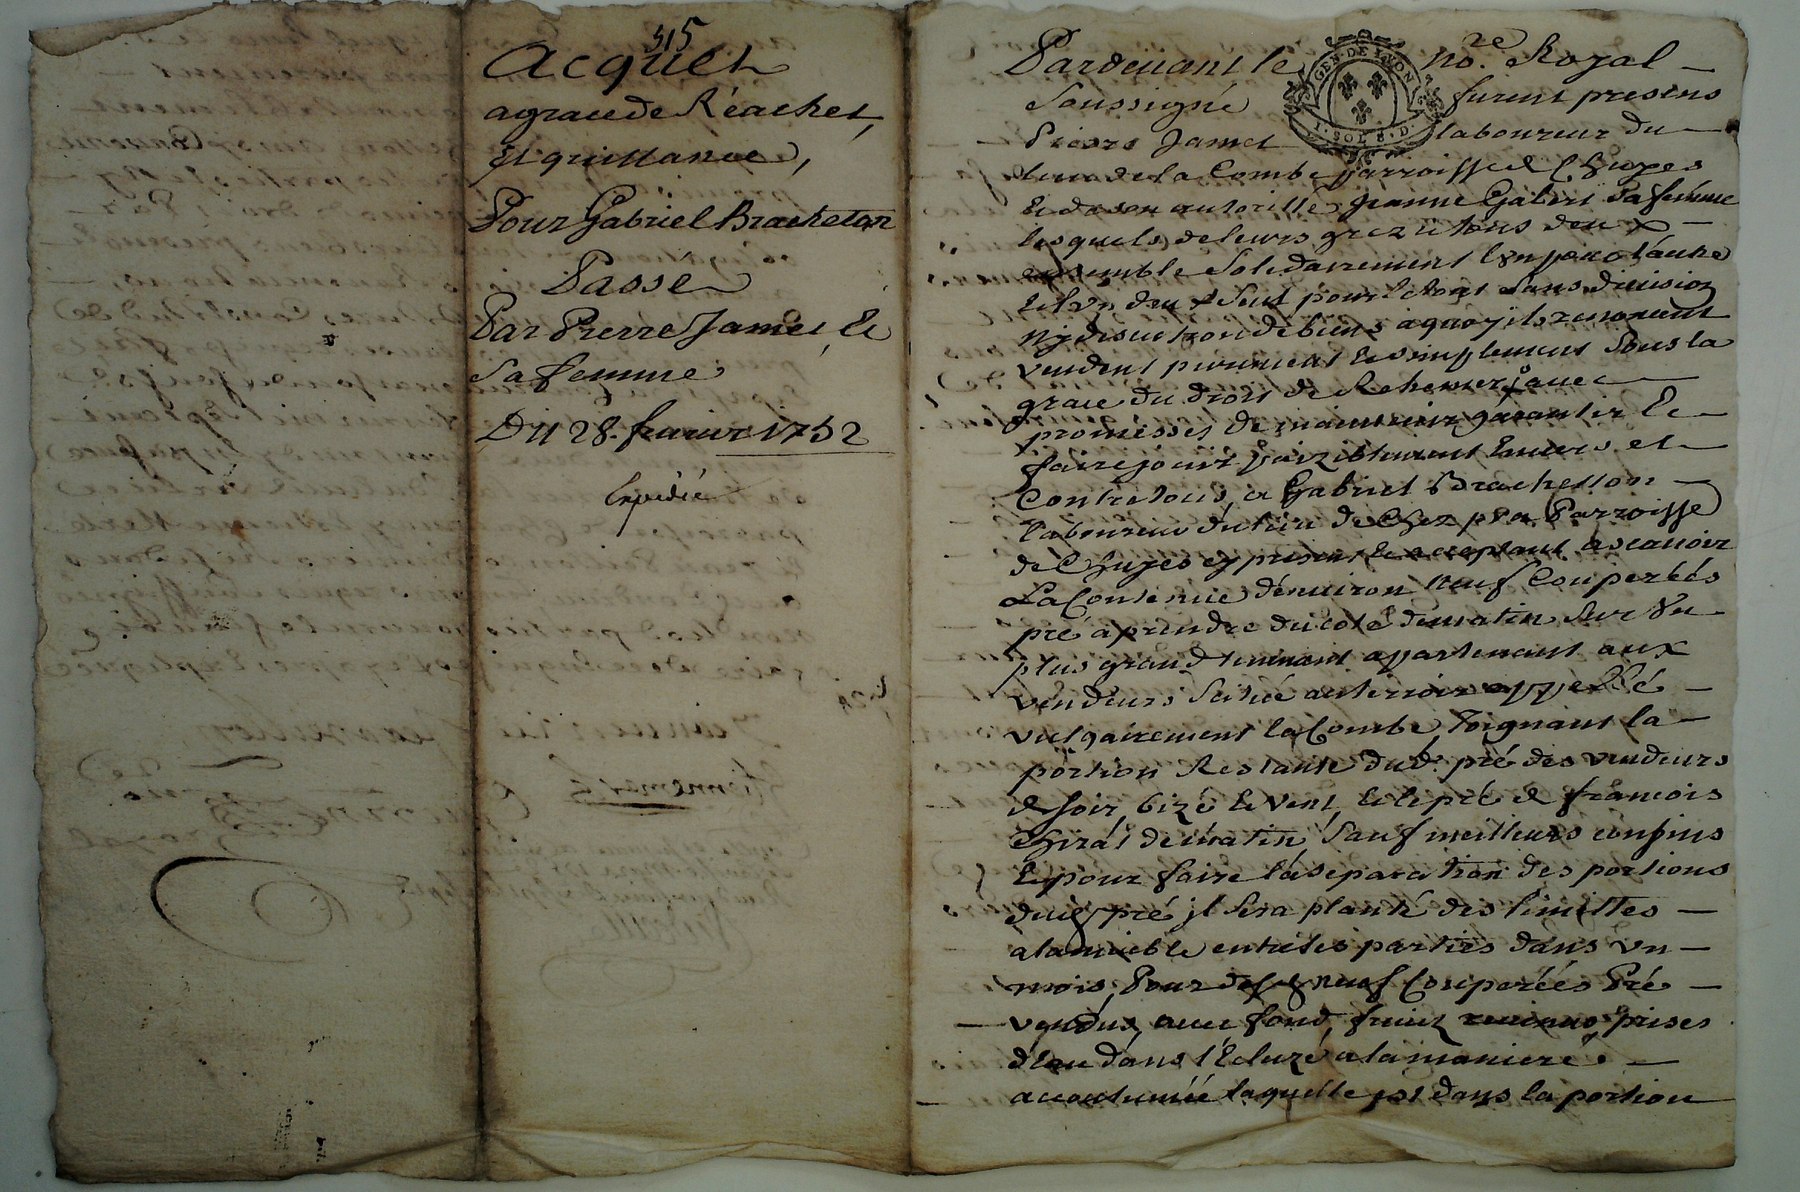 315
Acquet
a grace de Réachet,
Et quittance,
Pour Gabriel Bracheton
Passé
Par Pierre Jamet, Et
Sa femme
Du 28. fevrier 1752
Expedié
Pardevant le no.re Royal
GEN. DE LYON
1. SOL 8. D.
Soussigné furent presens
Pierre Jamet laboureur du
lieu de la Combe parroisse de Chuyes
Et de son autorité Jeanne Gabert Sa femme
lesquels de leurs grez et tous deux
ensemble Solidairement l'un pour l'autre
Et l'un deux Seul pour le tout Sans division
Ny discution de biens a quoy ils renoncent
vendent purement Et simplement Sous la
grace du droit de Rehemer, avec
promesses de maintenir garantir Et
faire jouir paiziblement Envers et
Contre tous, a Gabriel Brachetton
laboureur du lieu de Chez Parroisse
de Chuyes cy present Et acceptant ascavoir
La Contenue d'environ neuf Couperéés
pré a prendre du coté de matin Sur Un
plus grand tennant appartenant aux
vendeurs Scitué au terroir appellé
vulgairement la Combe, Joignant la
portion Restante dud. pré des vendeurs
de Soir, bize Et vent, Et le pré de francois
Chirat de matin, Sauf meilleurs confins
Et pour faire la separation des portions
dud. pré il sera planté des limittes
a lamieble entre les parties dans un
mois, Pour neuf Couperéés Pré
vendus, avec fond, fruits prises
d'Eau dans l'Ecluze, a la maniere
accoutumée laquelle est dans la portion